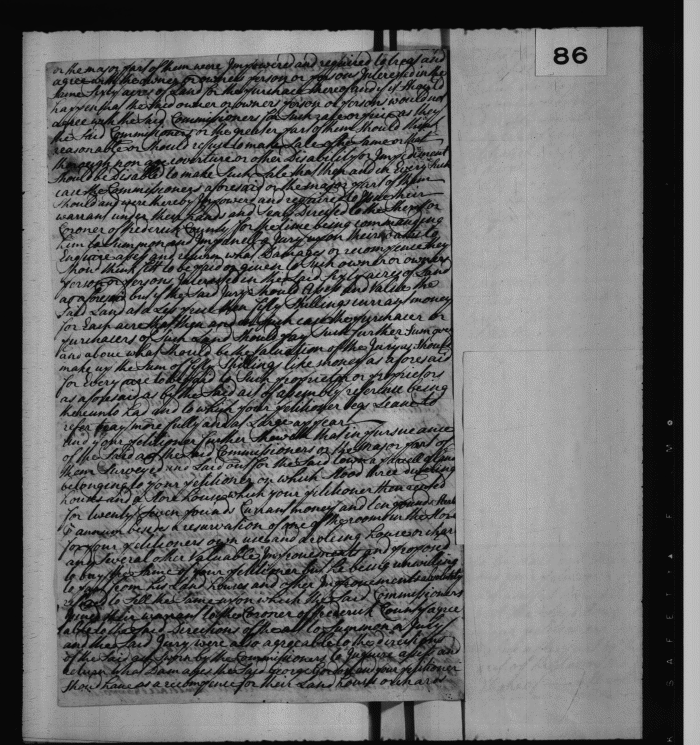 86
or the major part of them were Impowered and required to treat and
agree with the owner or owners person or persons Interested in the
same sixty acres of Land for the purchase thereof and if it should
happen that the said owner or owners person or persons would not
agree with the said Commissioners for such rate or price as they
the said Commissioners or the greater part of them should think
reasonable or should refuse to make Sale of the same or that
through non age coverture or other Disability or Impediment
should be Disabled to make such Sale that then and in every such
case the Commissioners aforesaid or the major part of them
should and were hereby Impowered and required to Issue their
warrant under their hands and Seals Directed to the Sheriff or
Coroner of Frederick County for the time being commanding
him to summon and Impannel a Jury upon their oaths to
Enquire assess and return what Damages or recompence they
should think fit to be paid or given to such owner or owners
person or persons Interested in the said sixty acres of Land
as aforesaid but if the said Jury should Assess and Value the
said Land at a Less price than fifty Shillings currant money
for Each acre that then and in such case the purchaser or
purchasers of such Land should pay such further Sum over
and above what should be the valuation of the Jury as should
make up the Sum of fifty Shillings like money as aforesaid
for every acre to be paid to such proprietor or proprietors
as aforesaid as by the said act of assembly reference being
thereunto had and to which your petitioner begs Leave to
refer may more fully and at Large appear
And your petitioner further sheweth that in pursueance
of the said act the said Commissioners or the major part of
them Surveyed and Laid out for the said Town a parcell of Land
belonging to your petitioner on which stood three dwelling
houses and a Store house which your petitioner then rented
for twenty seven pounds Currant money and ten pounds Sterl
p annum besides a reservation of one of the rooms in the Store
for your petitioners own use and a dwelling house orchard
and several other valuable Improvements and proposed
to buy the same of your petitioner but he being unwilling
to part from his Land houses and other Improvements
refused to sell the same upon which the said Commissioners
Issued their warrant to the Coroner of Frederick County agree
able to the said Directions of the act to summon a Jury
and the said Jury were also agreeable to the directions
of the said act sworn by the Commissioners to Inquire assess and
return what Damages the said George Gordon and your petitioner
should have as a recompence for their Land houses orchards